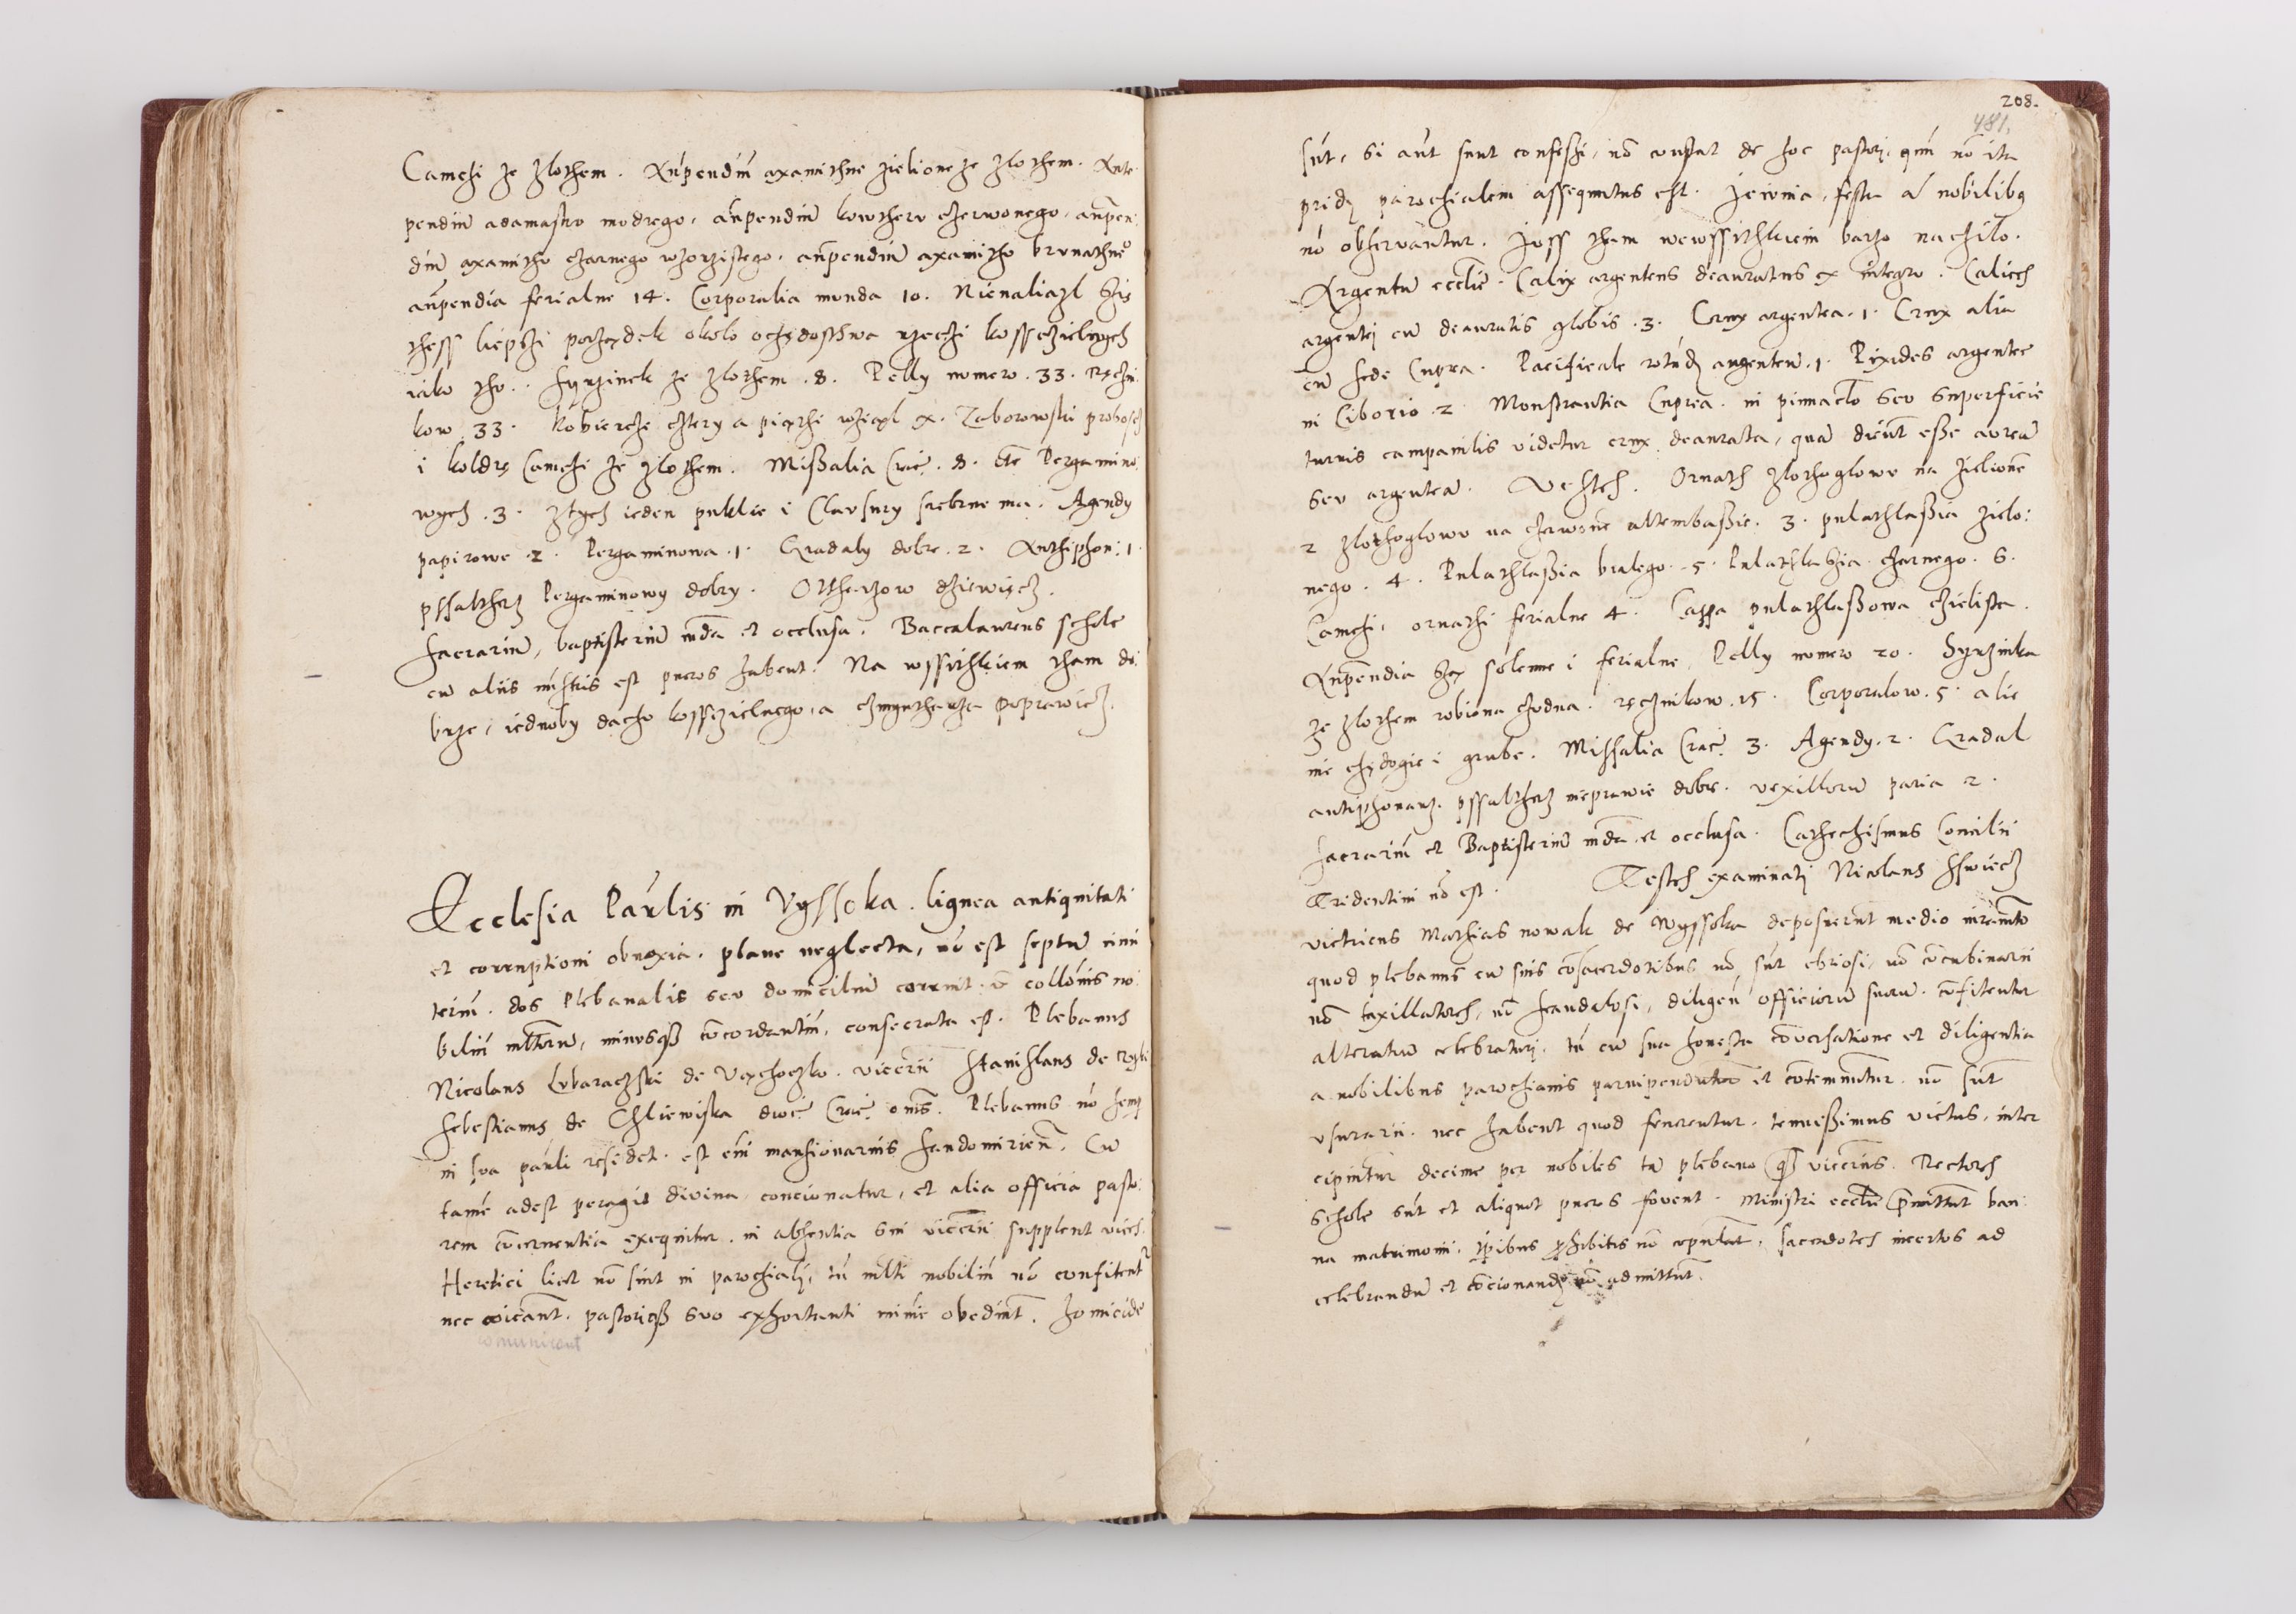 Camchi ze zlothem. Anpendiu axamithne zielione ze zlothem. Ante
pendiu adamasko modrego, anpendiu kowtheru czerwonego, anpen:
diu axamitho czarnego wzorzistego, anpendiu axamitho brunathne
anpendia ferialne 14. Corporalia munda 10. Nienaliazl
thess liepszi porządek około ochędosthwa rzeczi kossczielnych
iako tho. ze zlothem .8. Pelly numero .33. Ręczni
kow .33. Kobiercze chtery a piąthi wziąl x. Zaborowski probosch
i koldrę Camchi ze zlothem. Missalia Crac. 8. Pergamino
wych .3. ztych ieden puklie i Clausury srebrne ma. Agendy
papirowe .2. Pergaminowa .1. Gradaly dobre .2. Anthiphon: 1.
pssaltherz Pergaminowy dobry. Oltharzow dziewięcz.
Sacrariu, baptisteriu mda et occlusa. Baccalaureus schole
cu aliis mistris est pueros habent. Na wssithkiem tham do:
brze, iednoby dacho kosscielnego, a czmyntharza poprawicz.
Ecclesia Paulis in Vyssoka. lignea antiquitati
et corruptioni obnoxia. plane neglecta, no est septu cimi
teriu. dos Plebanalis seu domiciliu corruit. collonis no
biliu mltoru, minusqz concordantiu, consecrata est. Plebanus
Nicolaus Lubaraczski de Vachoczko. vicerii Stanislaus de
Sebestianus de Chliewiska dioc. Crac. oms. Plebanus no semp
in sua pauli residet. est eni mansionarius Sandomirien. Cu
tame adest peragit divina, concionatur, et alia officia pasto:
rem concernentia exequitur. in absentia sui vicerii supplent vices.
Heretici licet no sint in parochiali, tn mlti nobiliu no confitent
nec coicant. pastoriqz suo exhortanti minie obediut. Homicide
comunicant
208.
481.
sut. Si aut sunt confessi, no constat de hoc pastori, qm no ita
prid parochialem assequutus est. Jeiunia, festa a nobilibq
no observantur. Juss tham wewssithkiem barzo naczilo.
Argentu ecclie. Calix argenteus deauratus ex integro. Calices
argentei cu deauratis globis .3. Crux argentea .1. Crux alia
cu sede Cuprea. Pacificale rotud argenteu .1. Pixides argentee
in Ciborio .2. Monstrantia Cuprea. in pinnaclo seu superficie
turris campanilis videtur crux deaurata, qua dicut esse aurea
seu argentea. Vestes. Ornath zlothoglowu na zielione
2 zlothoglowu na czerwone altembassie. 3. pulathlassia zielo:
nego .4. Pulathlassia bialego .5. Pulathlassia czarnego .6.
Camchi, ornathi ferialne 4. Cappa pulathlassowa czielista.
Anpendia solenne i ferialne, Pelly numero 20. Syrzinka
ze zlothem robiona chodna. ręcznikow .15. Corporalow .5. alie
nie chędogie i grube. Missalia Crac. 3. Agendy .2. Gradal
antiphonarz. pssaltherz nieprawie dobre. vexilloru paria 2.
Sacrariu et Baptisteriu mda et occlusa. Cathechismus Concilii
Tridentini no est. Testes examinati Nicolaus Sswiecz
victricus Mathias nowak de Wyssoka deposuerut medio iuramto
quod plebanus cu suis cosacerdotibus no sut ebriosi, no concubinarii
no taxillatores, no scandalosi, diligen officioru suoru. confitentur
alteratru celebraturi, tn cu sua honesta conversatione et diligentia
a nobilibus parochianis parvipenduntur et contemnuntur. no sut
usurarii. nec habent quod fenerentur. tenuessimus victus, inter
cipiuntur decime per nobiles ta plebano qz vicerius. Rectores
schole sut et aliquot pueros fovent. Ministri ecclie pmittut ban:
na matrimonii, tpibus phibitis no copulat, sacerdotes incertos ad
celebrandu et concionand no admittut.